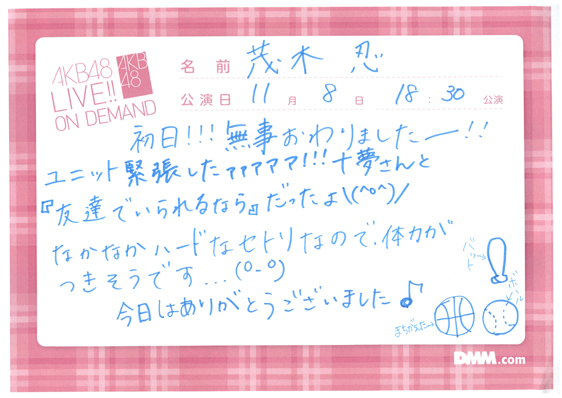 AKB48
LIVE!!
ON DEMAND
AKB
48
名前 茂木 忍
公演日 11月 8日 18:30 公演
初日!!!無事おわりましたー!!
ユニット緊張したァァァァァ!!!十夢さんと
『友達でいられるなら』だったよ\(^o^)/
なかなかハードなセトリなので、体力が
つきそうです...(0_0)
今日はありがとうございました♪
バット
ボール
まちがえた→
DMM.com